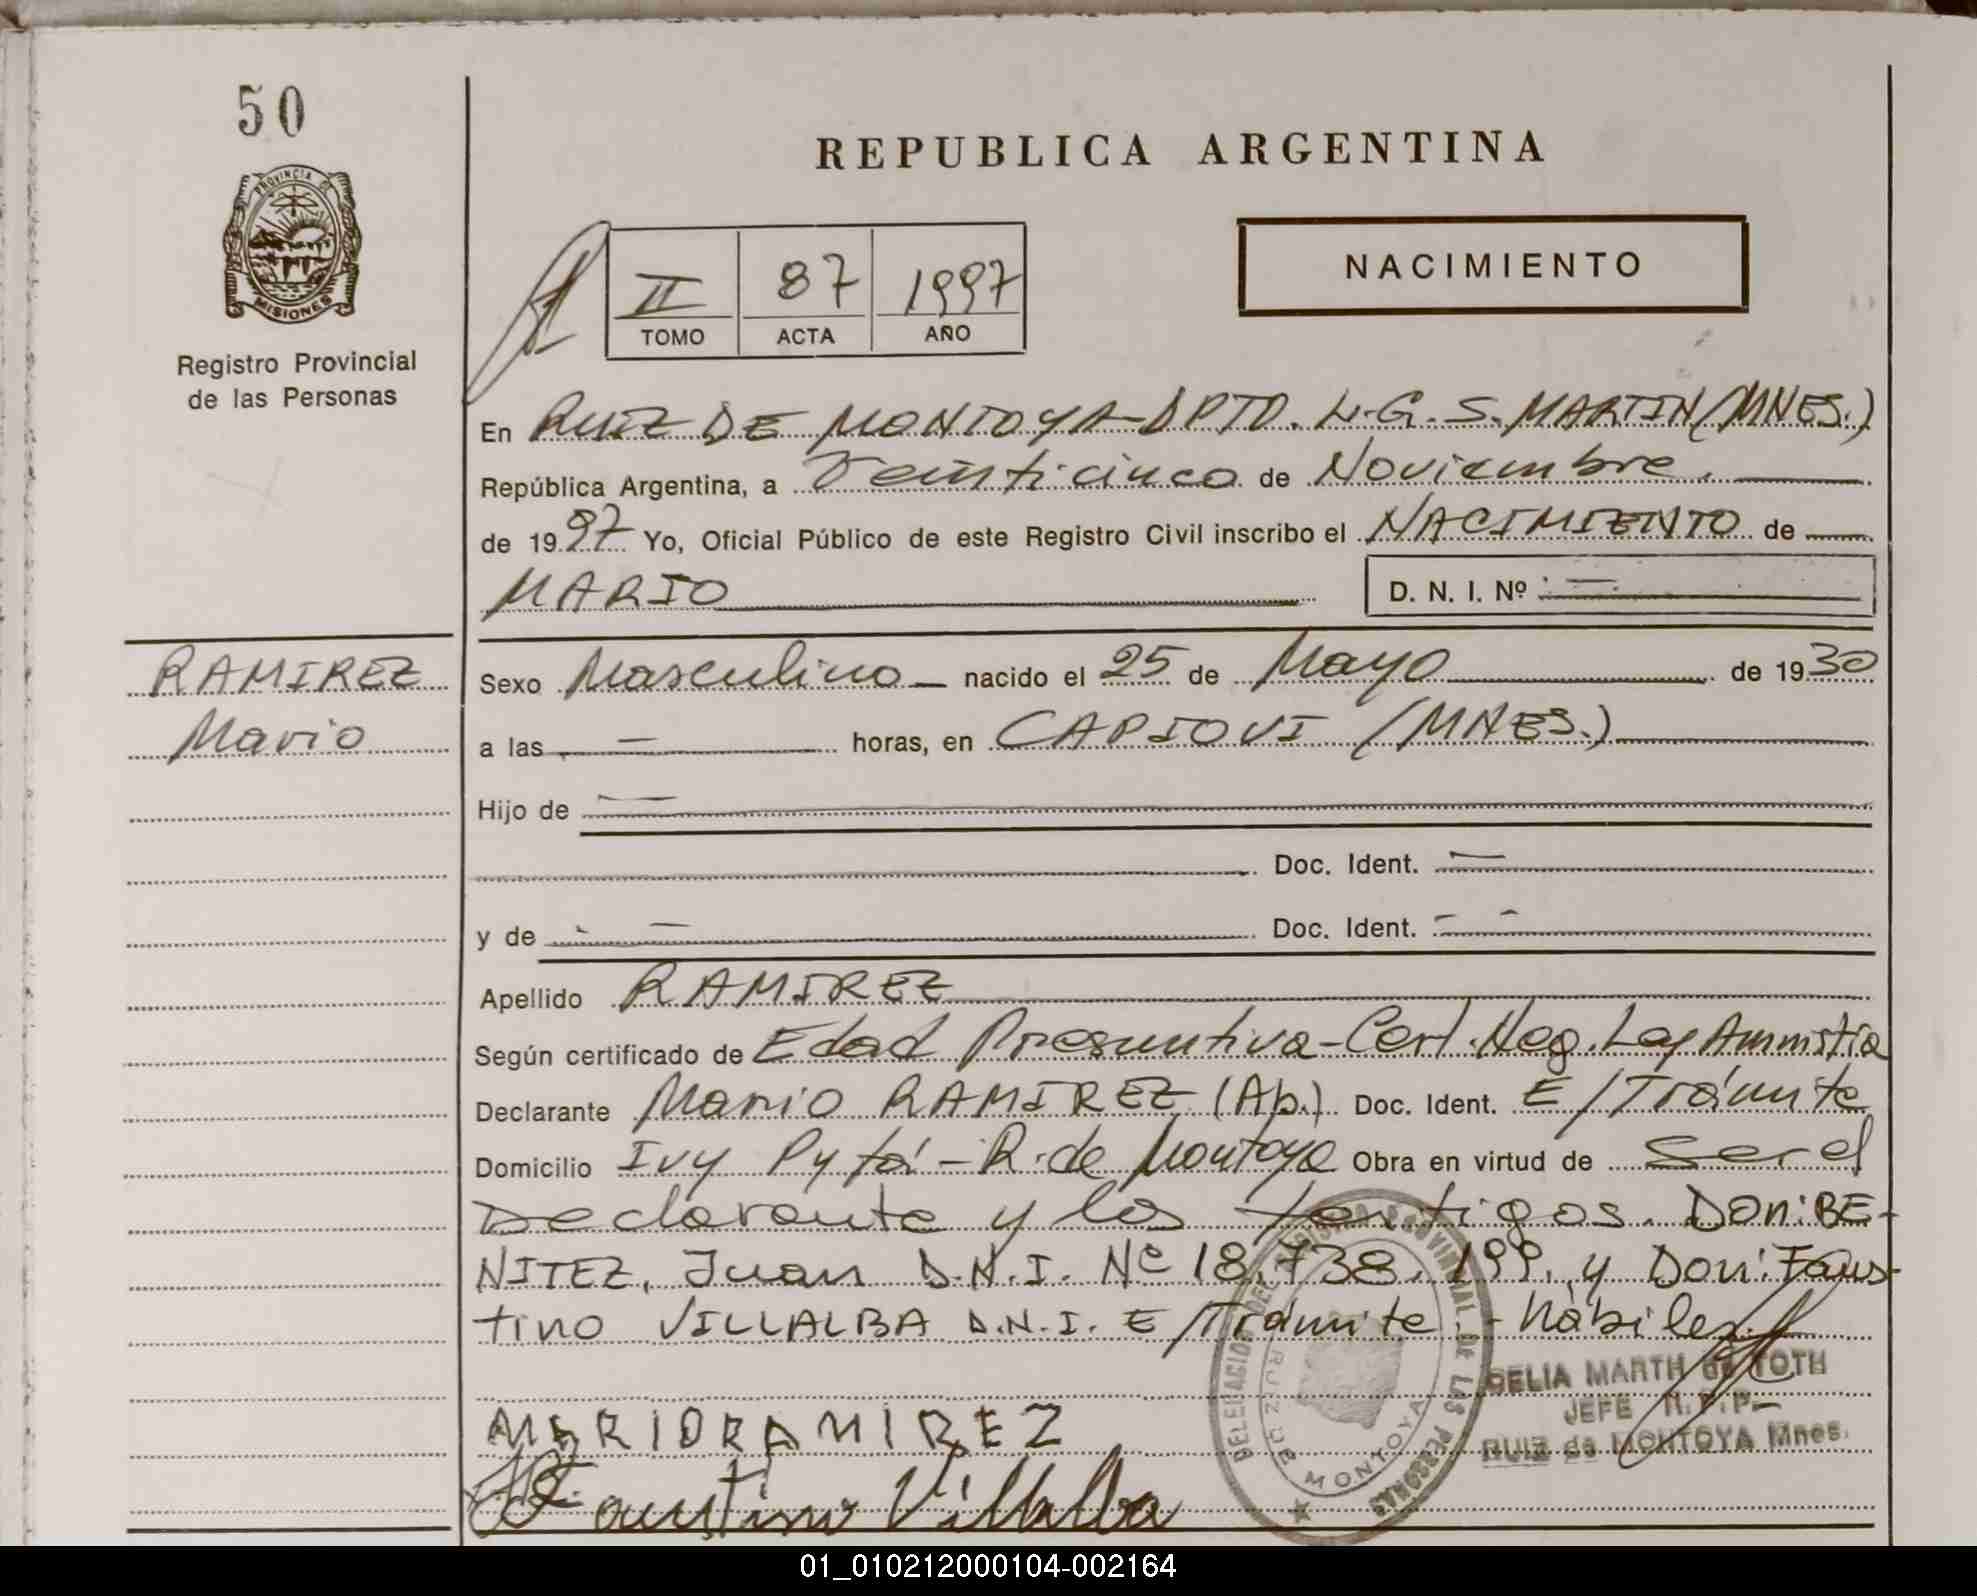 50
REPUBLICA ARGENTINA
PROVINCIA DE
MISIONES
Registro Provincial
de las Personas
NACIMIENTO
II 87 1997
TOMO ACTA AÑO
En RUIZ DE MONTOYA-DPTO. L.G.S. MARTIN (MNES.)
República Argentina, a Veinticinco de Noviembre.
de 1997 Yo, Oficial Público de este Registro Civil inscribo el NACIMIENTO de
MARIO D. N. I. Nº
RAMIREZ
Mario
Sexo Masculino nacido el 25 de Mayo de 1930
a las — horas, en CAPIOVI (MNES.)
Hijo de —
Doc. Ident. —
y de — Doc. Ident. - -
Apellido RAMIREZ
Según certificado de Edad Presuntiva-Cert.Neg.Ley Amnistia
Declarante Mario RAMIREZ (Ap.) Doc. Ident. E/Trámite
Domicilio Ivy Pytá-R.de Montoya Obra en virtud de ser el
Declarante y los testigos. Don: BE-
NITEZ, Juan D.N.I. Nº 18.738.199. y Don: Faus-
tino VILLALBA D.N.I. E/Trámite - hábiles.
DELEGACION DEL REGISTRO PROVINCIAL DE LAS PERSONAS
RUIZ DE MONTOYA
CELIA MARTH de TOTH
JEFE R.P.P.
RUIZ de MONTOYA Mnes.
MARIO RAMIREZ
Faustino Villalba
01_010212000104-002164